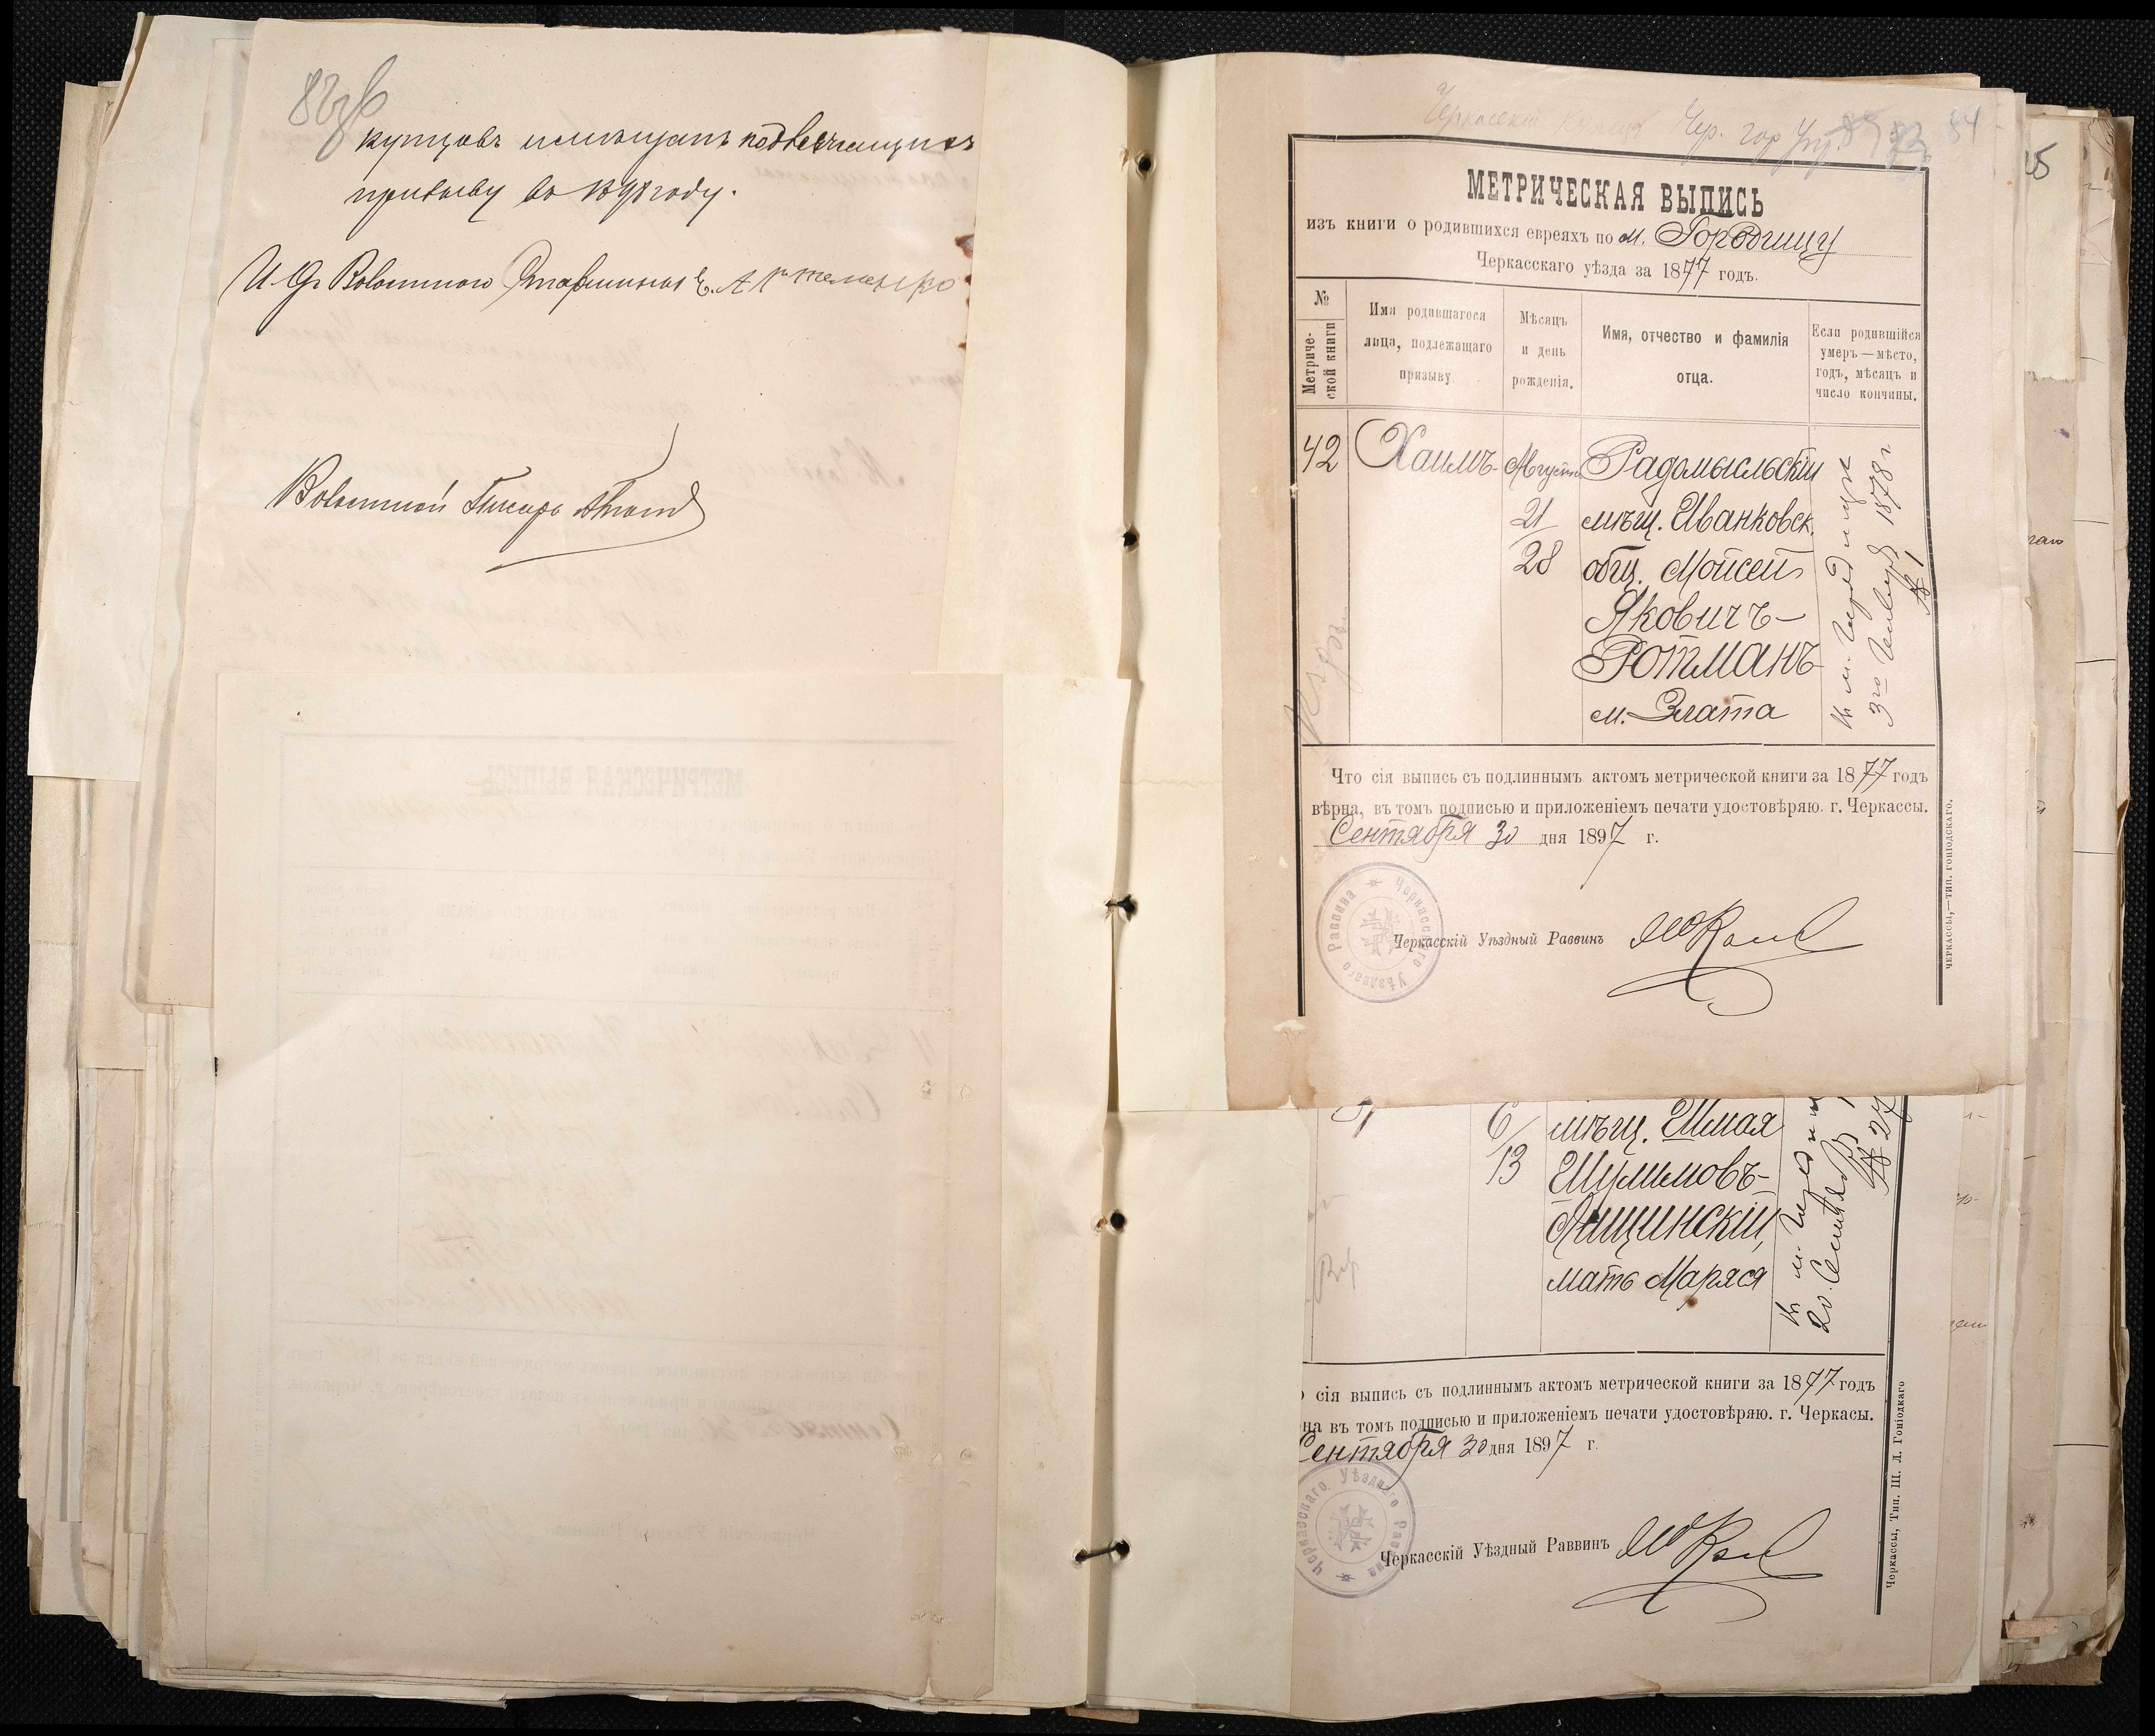 купцовъ и мѣщанъ подлежащихъ
призыву въ 1898 году.
И. д. Волостного Старшины Е. Артеменко
Волостной Писарь
Чер. гор. Упр.
84
МЕТРИЧЕСКАЯ ВЫПИСЬ
изъ книги о родившихся евреяхъ по м. Городищу
Черкасскаго уѣзда за 1877 годъ.
№ Метрической книги
Имя родившагося лица, подлежащаго призыву
Мѣсяцъ и день рожденія.
Имя, отчество и фамилія отца.
Если родившійся умеръ—мѣсто, годъ, мѣсяцъ и число кончины.
42 Хаимъ Августа Радомысльскій
21 мѣщ. Иванковск.
28 общ. Мойсей
Яковичъ
Ротманъ
м. Злата
въ м. Городищѣ
3го Января 1878 г.
№ 1
Что сія выпись съ подлиннымъ актомъ метрической книги за 1877 годъ
вѣрна, въ томъ подписью и приложеніемъ печати удостовѣряю. г. Черкассы.
Сентября 30 дня 1897 г.
Черкасскаго Уѣзднаго Раввина
Черкасскій Уѣздный Раввинъ
ЧЕРКАССЫ,—ТИП. ГОНІОДСКАГО.
6 мѣщ. Шмая
13 Шулимовъ
Лищинскій,
мать Маряся
въ м. Городищ
20 Сентября
№ 27
сія выпись съ подлиннымъ актомъ метрической книги за 1877 годъ
на въ томъ подписью и приложеніемъ печати удостовѣряю. г. Черкасы.
Сентября 30 дня 1897 г.
Черкасскаго Уѣзднаго Раввина
Черкасскій Уѣздный Раввинъ
Черкассы, Тип. Ш. Л. Гоніодкаго